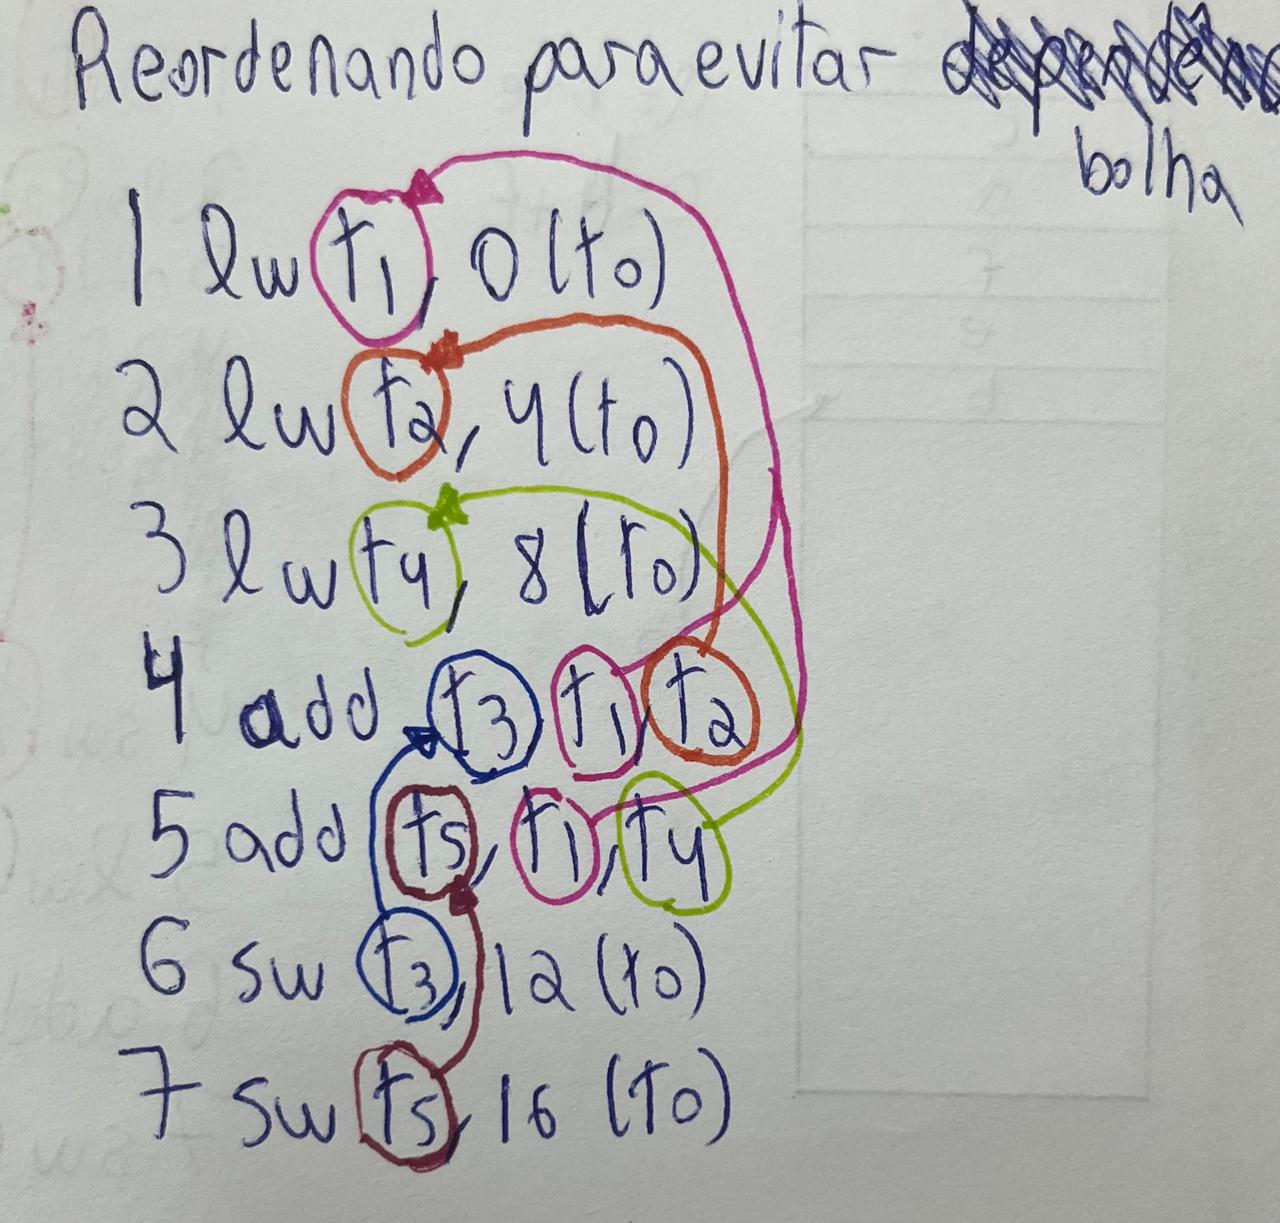 Reordenando para evitar
bolha
1 lw t1, 0(t0)
2 lw t2, 4(t0)
3 lw t4, 8(t0)
4 add t3 t1, t2
5 add t5, t1, t4
6 sw t3, 12(t0)
7 sw t5, 16(t0)